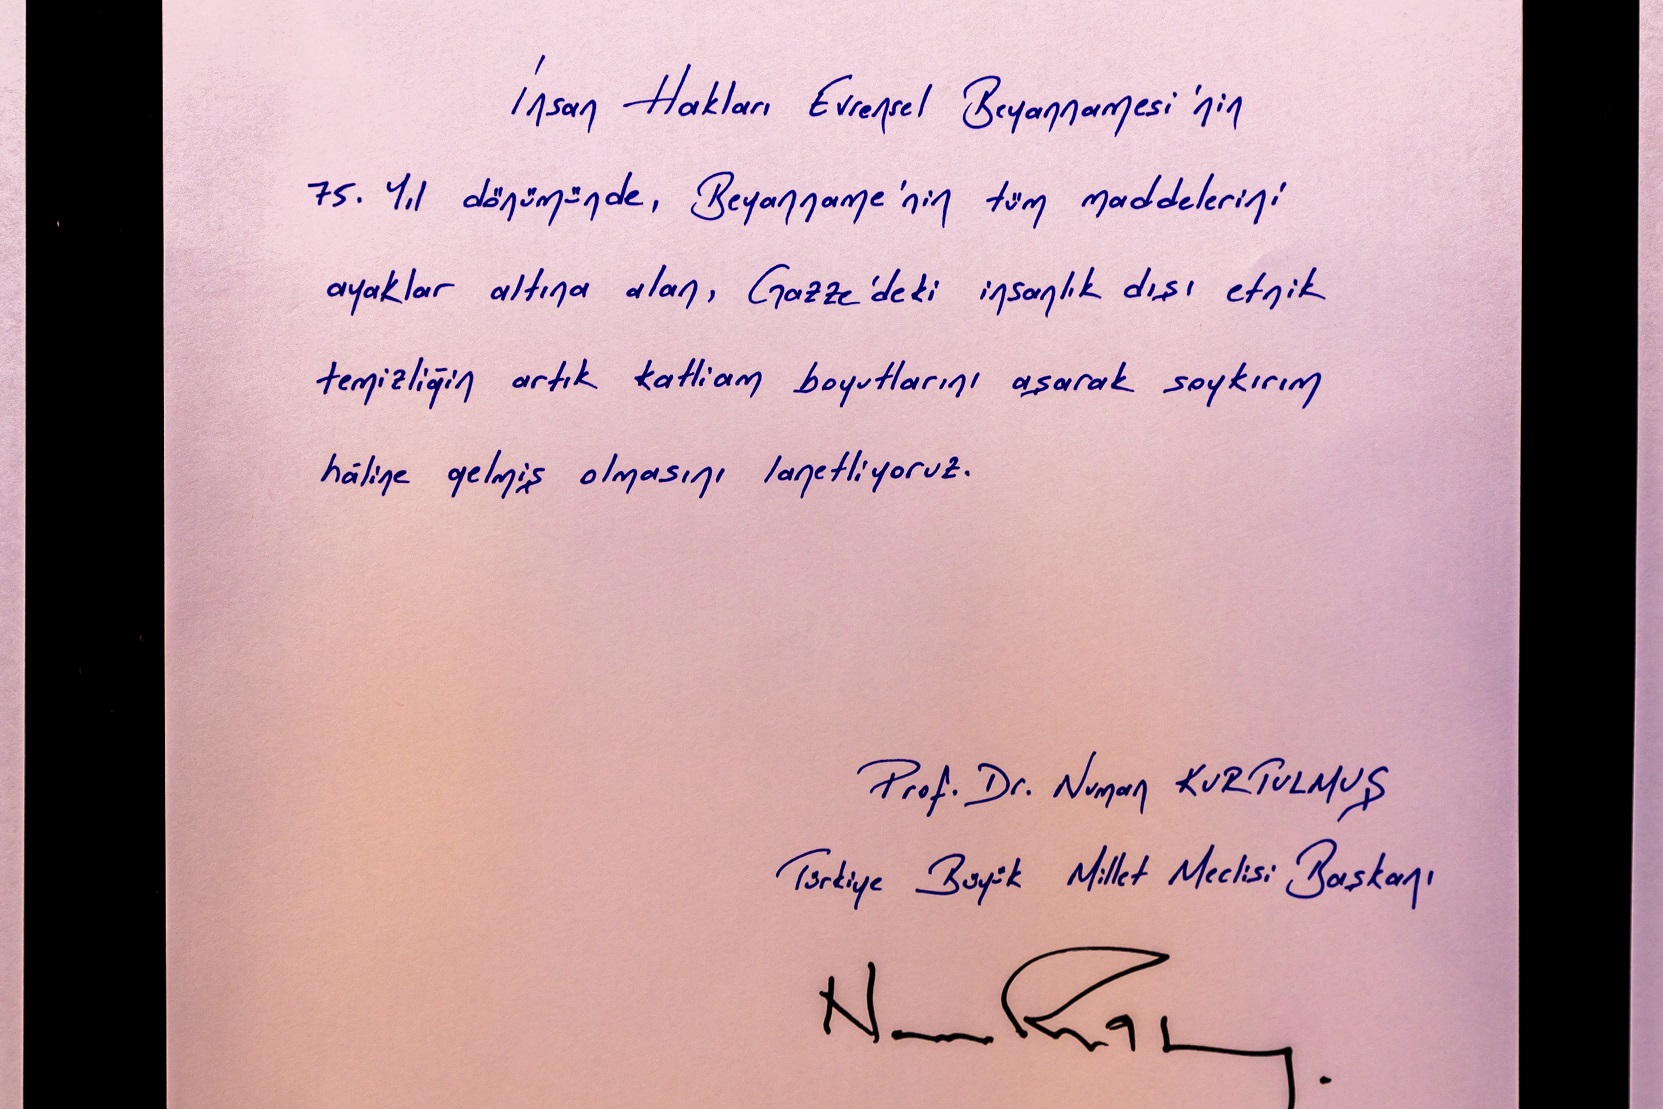 İnsan Hakları Evrensel Beyannamesi'nin
75. Yıl dönümünde, Beyanname'nin tüm maddelerini
ayaklar altına alan, Gazze'deki insanlık dışı etnik
temizliğin artık katliam boyutlarını aşarak soykırım
hâline gelmiş olmasını lanetliyoruz.
Prof. Dr. Numan KURTULMUŞ
Türkiye Büyük Millet Meclisi Başkanı